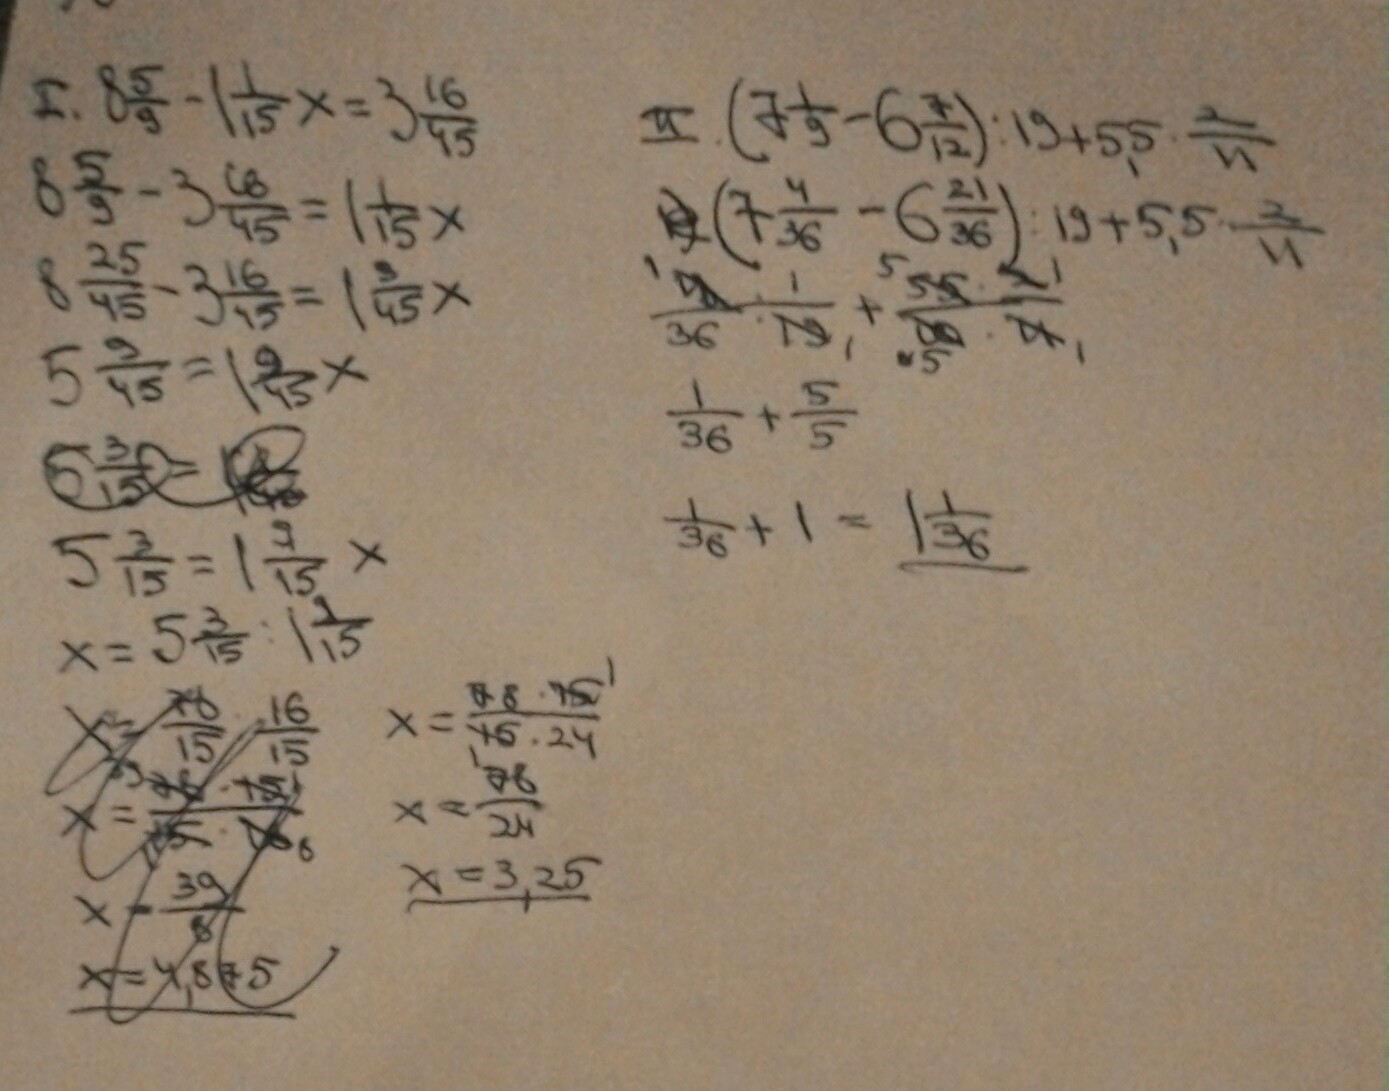 I. 8 5/9 - 1 1/15 x = 3 16/45
8 5/9 - 3 16/45 = 1 1/15 x
8 25/45 - 3 16/45 = 1 3/45 x
5 9/45 = 1 9/45 x
5 3/15 = 1
5 3/15 = 1 9/15 x
x = 5 3/15 : 1 9/15
x = 78/15 : 16/15
x =
x = 39/8
x = 4,875
x = 78 · 15 / 15 · 24
x = 78/24
x = 3,25
II. (7 1/9 - 6 7/12) : 19 + 5,5 · 2/11
(7 4/36 - 6 21/36) : 19 + 5,5 · 2/11
19 · 1 / 36 · 19 + 55 · 2
1/36 + 5/5
1/36 + 1 = 1 1/36